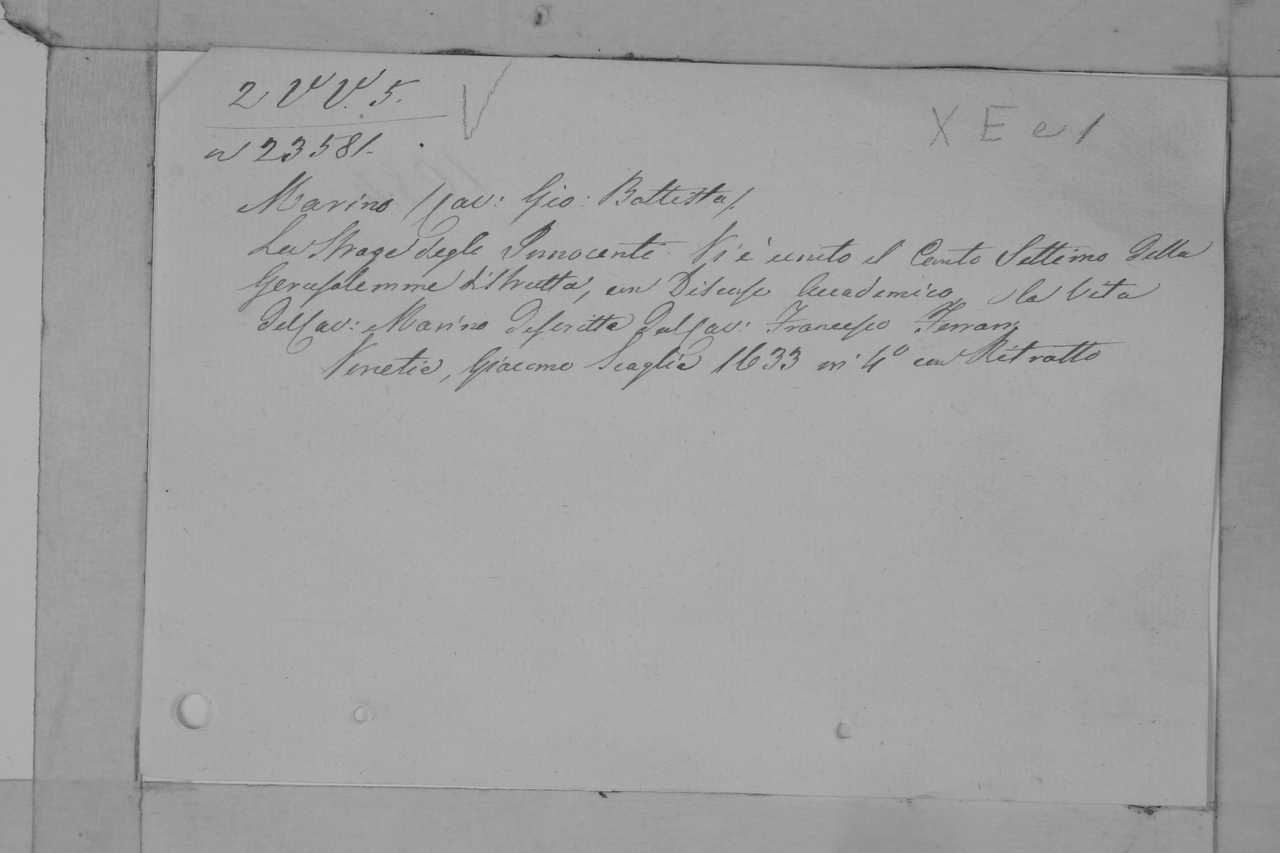 2 V V. 5.
XE e 1
n 23581.
Marino /Cav: Gio: Battista/
La Strage degli Innocenti. Vi è unito il Canto Settimo della
Gerusalemme distrutta, un Discorso Accademico, e la Vita
del Cav: Marino descritta dal Cav: Francesco Ferrari
Venetia, Giacomo Scaglia 1633 in 4° con Ritratto